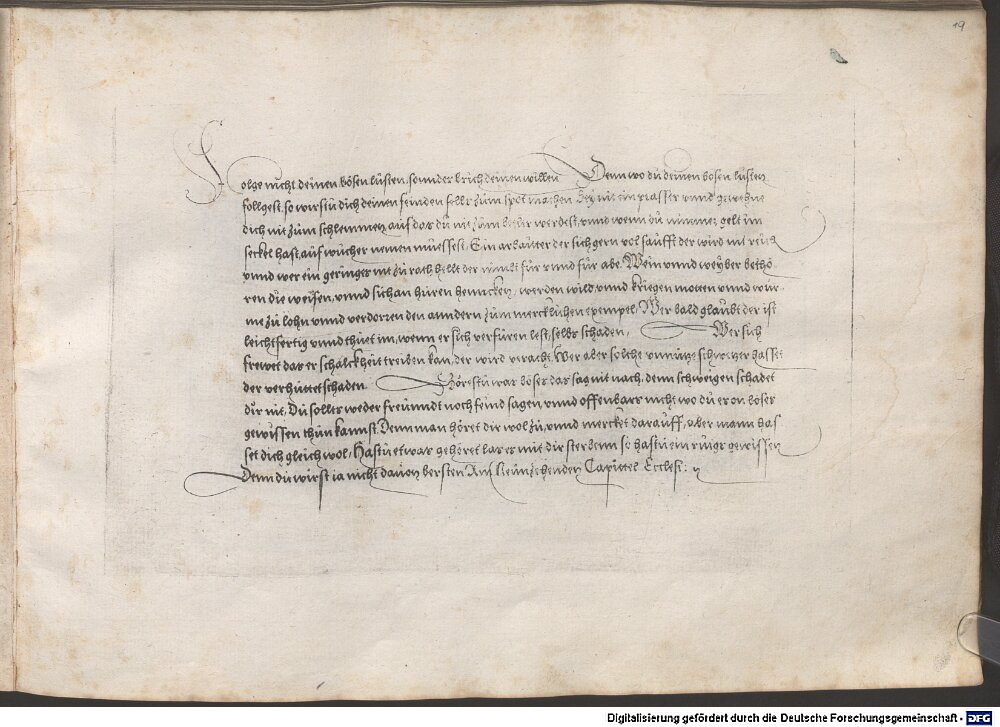 19
Folge nicht deinen bösen lüsten, sonnder brich deinen willen Denn wo du deinen bösen lüsten
follgest, so wirstu dich deinen feinden selbs zum spot machen Sey nit ein prasser vnnd gewehne
dich nit zum schlemmen auf das du nit zum betler werdest, vnnd wenn du nimmer gelt im
seckl hast, auf wucher nemen müessest. Ein arbaiter der sich gern vol saufft der wird nit reich
vnnd wer ein geringes nit zu rath hellt der nimbt für vnnd für abe. Wein vnnd weyber bethö-
ren die weisen, vnnd sich an huren henncken, werden wild, vnnd kriegen motten vnnd wür-
me zu lohn vnnd verdorren den anndern zum mercklichen exempel, Wer bald glaubt der ist
leichtfertig vnnd thuet im, wenn er sich verfüren lest, selbs schaden, Wer sich
frewet das er schalckheit treiben kan, der wird veracht Wer aber solche vnnütze schwetzer hasset
der verhüttet schaden Hörestu was böses das sag nit nach, denn schweigen schadet
dir nit, Du sollts weder freünndt noch feind sagen, vnnd offenbars nicht wo du es on böses
gewissen thun kannst. Denn man höret dir wol zu, vnnd mercket darauff, aber mann has-
set dich gleich wol, Hastu etwas gehöret las es mit dir sterbenn so hastu ein rüigs gewissen
Denn du wirst ia nicht dauon bersten Am Neunzehenden Capittel Ecclesi:
Digitalisierung gefördert durch die Deutsche Forschungsgemeinschaft - DFG